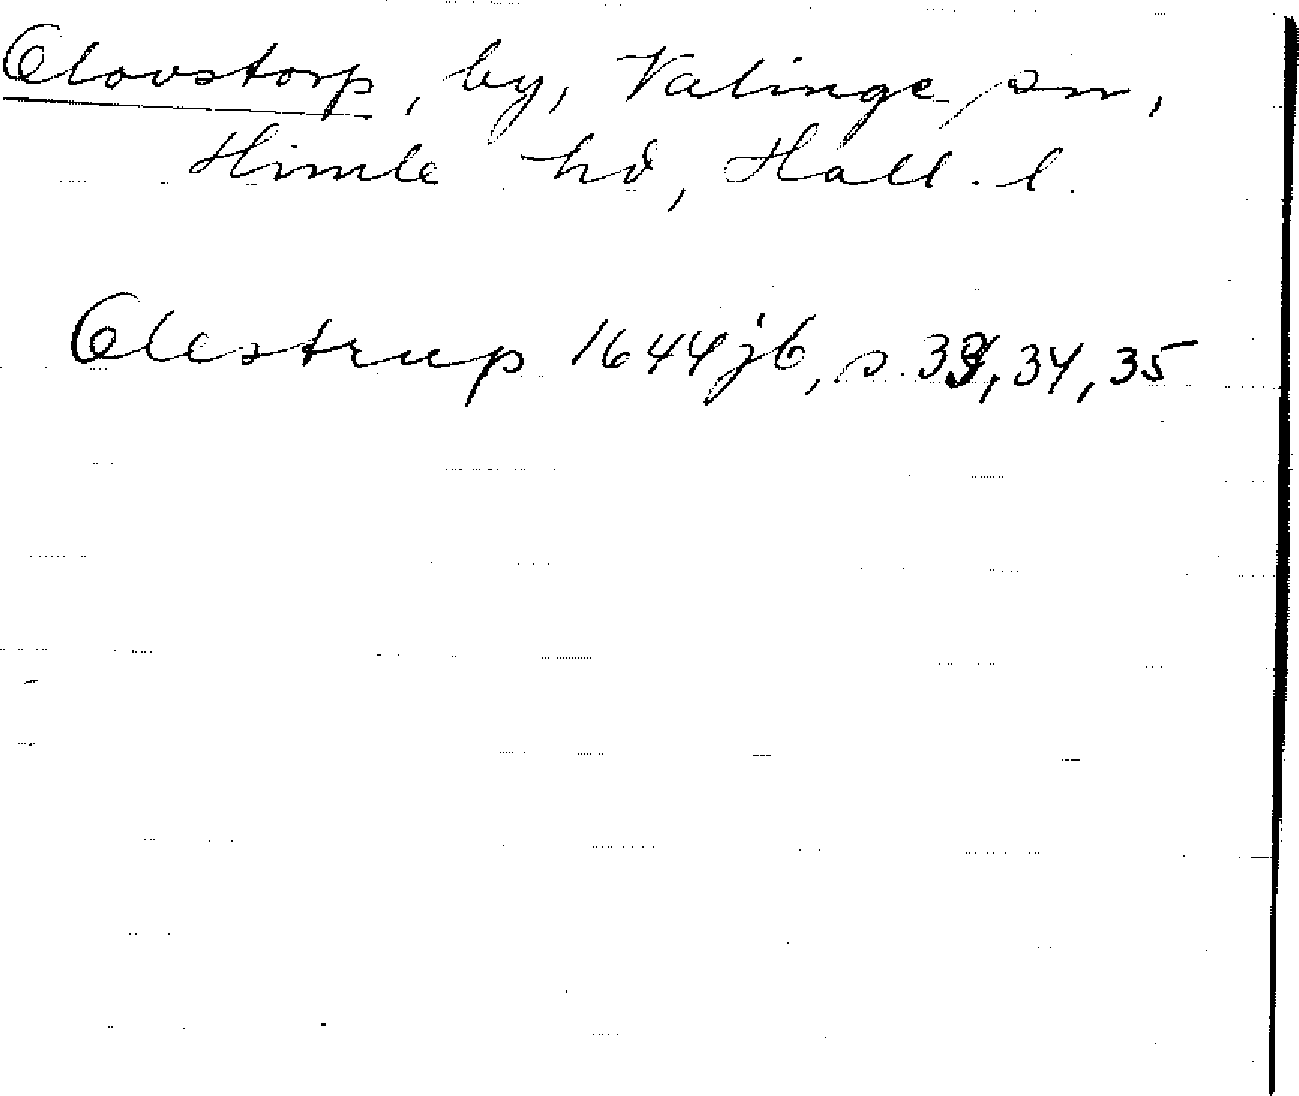 Olovstorp, by, Valinge sn,
Himle hd, Hall. l.
Olestrup 1644 jb, s. 33, 34, 35